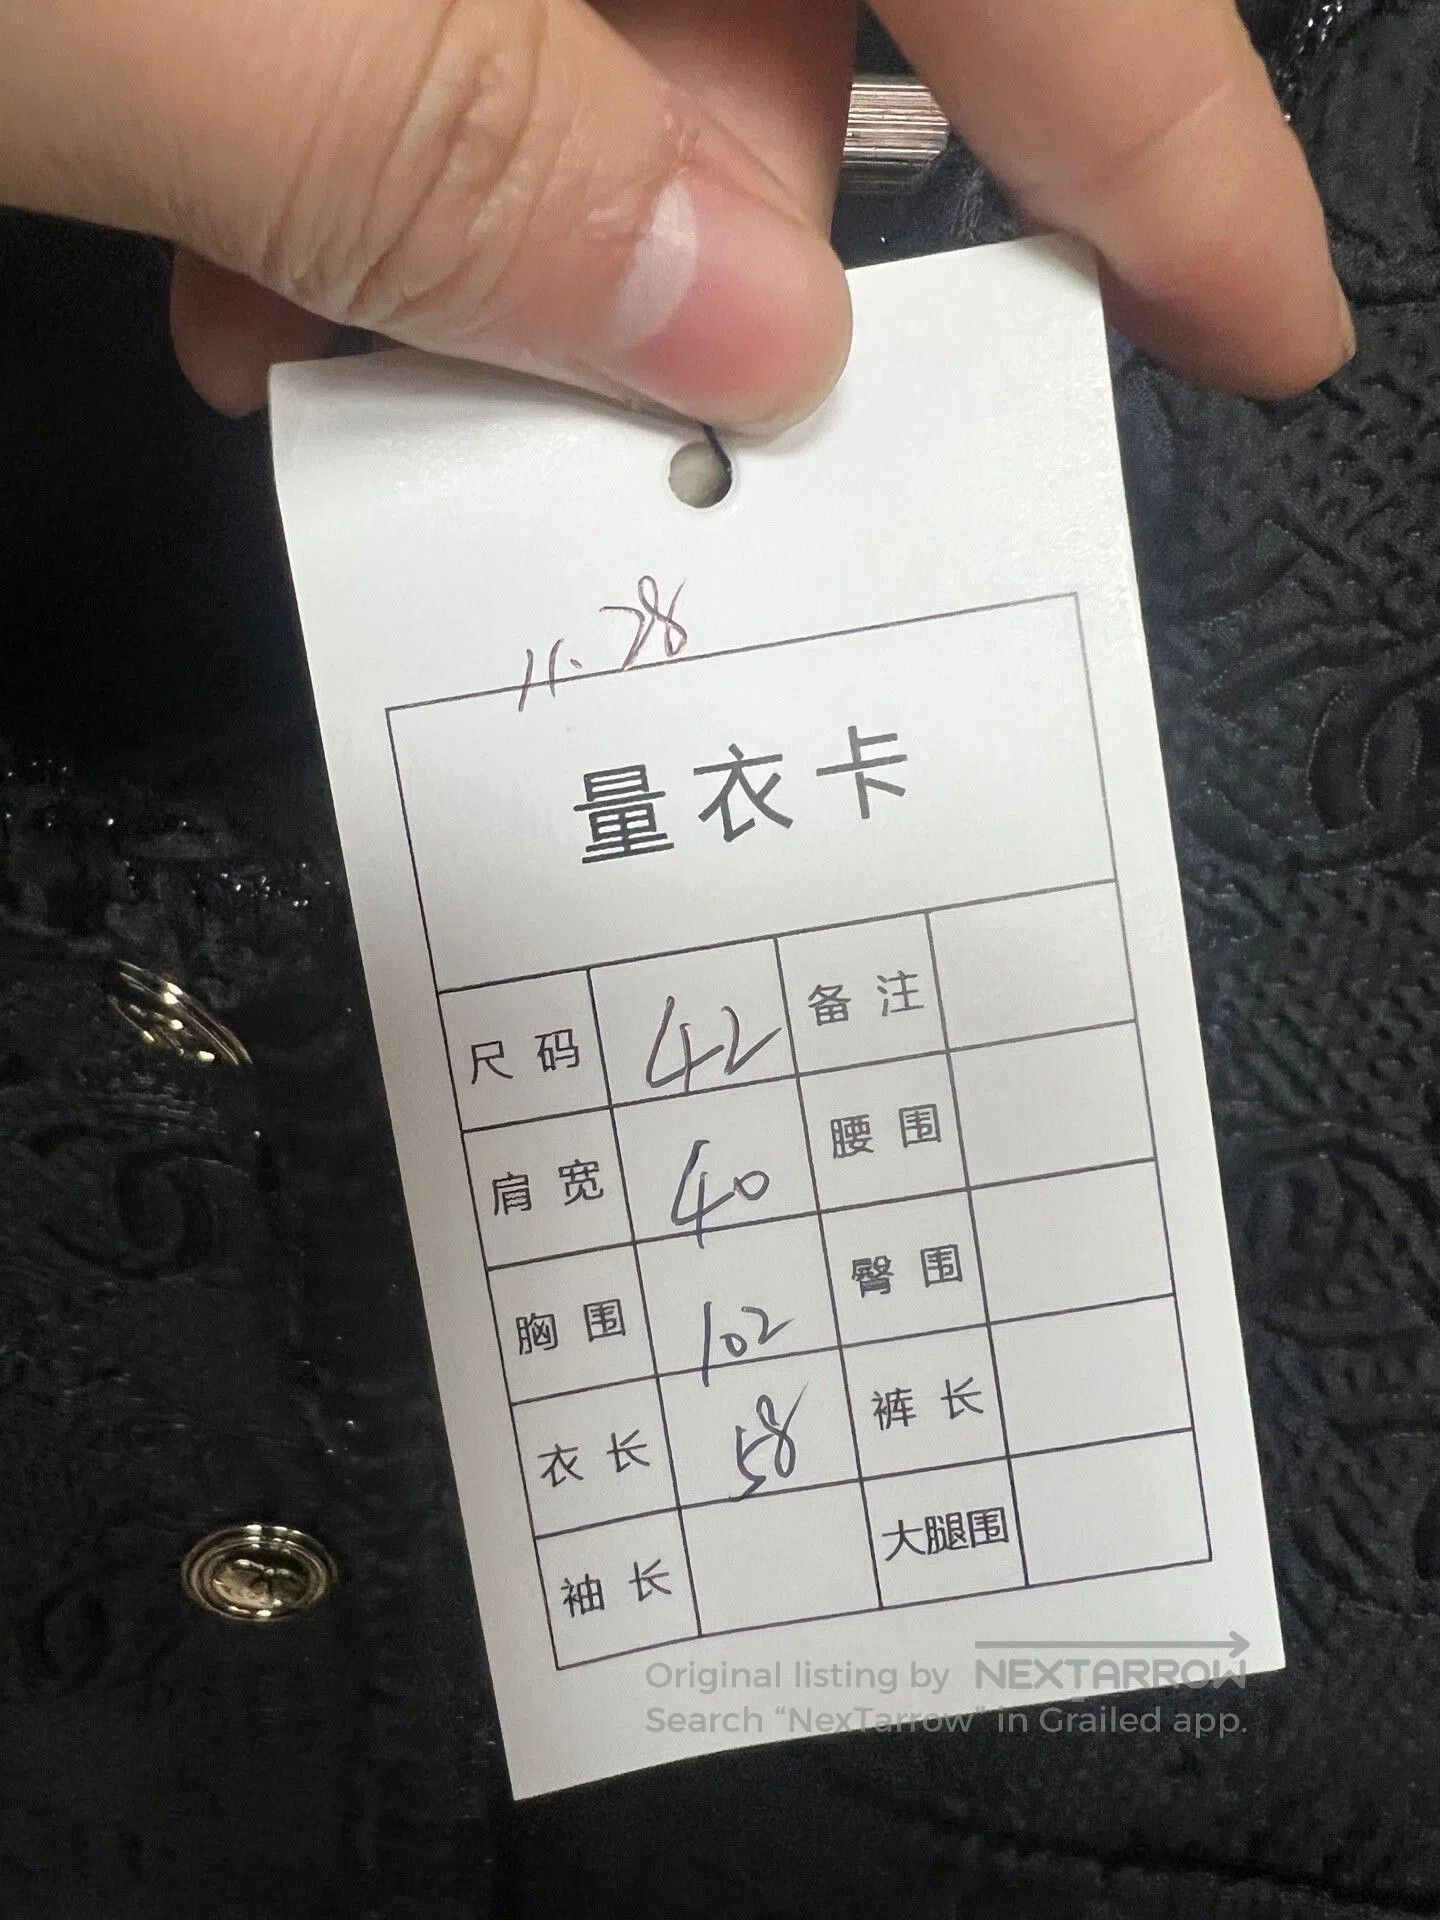 11.28
量衣卡
尺码 42 备注
肩宽 40 腰围
胸围 102 臀围
衣长 58 裤长
袖长 大腿围
Original listing by NEXTARROW
Search “NexTarrow” in Grailed app.